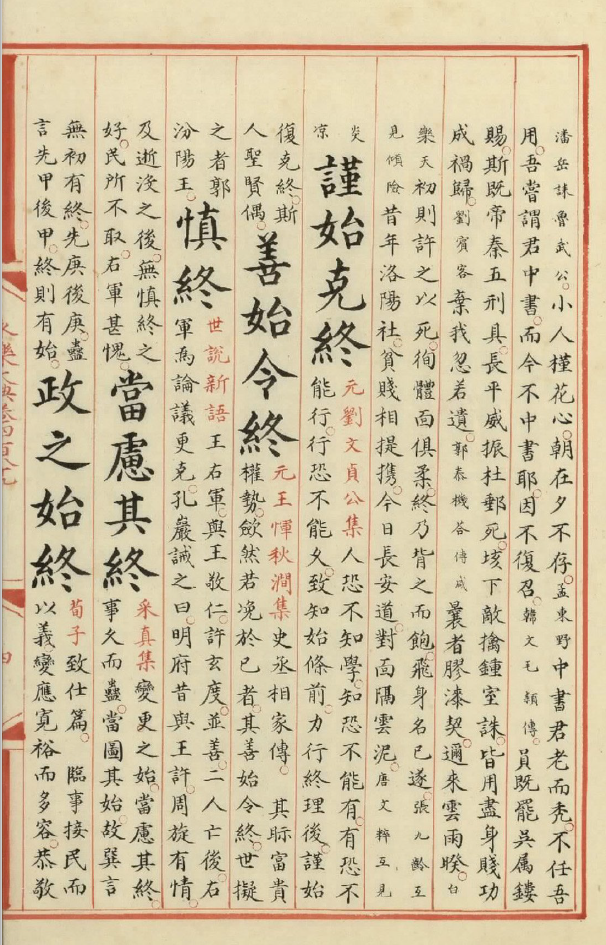 潘岳誄魯武公。小人槿花心。朝在夕不存。孟東野中書君老而禿。不任吾
用。吾嘗謂君中書。而今不中書耶。因不復召。韓文毛穎傳。員既罷吳属鏤
賜。斯既帝秦五刑具。長平威振杜郵死。垓下敵擒鍾室誅。皆用盡身賤功
成禍歸。劉賓客棄我忽若遺。郭泰機答傅咸曩者膠漆契。邇來雲雨睽。白
樂天初則許之以死。徇體面俱柔。終乃背之而飽飛。身名已遂。張九齡互
見傾險昔年洛陽社。貧賤相提携。今日長安道。對面隔雲泥。唐文粹互見
炎
凉
謹始克終
元劉文貞公集人恐不知學。知恐不能有。有恐不
能行。行恐不能久。致知始條前。力行終理後。謹始
復克終。斯
人聖賢偶。
善始令終
元王惲秋澗集史丞相家傳。其眎富貴
權勢。欿然若凂於已者。其善始令終。世擬
之者郭
汾陽王。
慎終
世說新語王右軍。與王敬仁。許玄度。並善。二人亡後。右
軍為論議更克。孔巖誡之曰。明府昔與王許。周旋有情
及逝沒之後。無慎終之
好。民所不取。右軍甚愧。
當慮其終
采真集變更之始。當慮其終。
事久而蠱。當圖其始。故巽言
無初有終。先庚後庚。蠱
言先甲後甲。終則有始。
政之始終
荀子致仕篇。臨事接民而
以義變應。寬裕而多容。恭敬